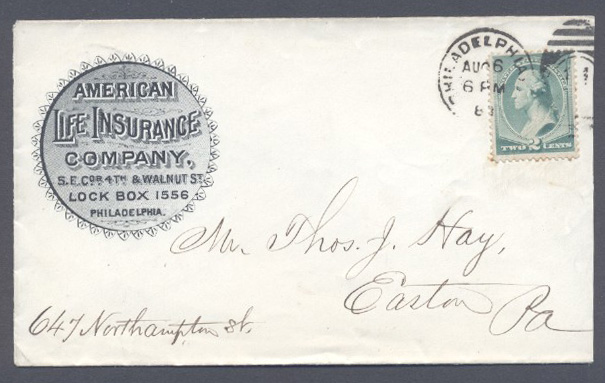 AMERICAN
LIFE INSURANCE
COMPANY,
S.E. COR 4TH & WALNUT ST.
LOCK BOX 1556
PHILADELPHIA.
PHILADELPHIA
AUG 6
6 PM
TWO 2 CENTS
Mr. Thos. J. Hay,
Easton
Pa
647 Northampton St.